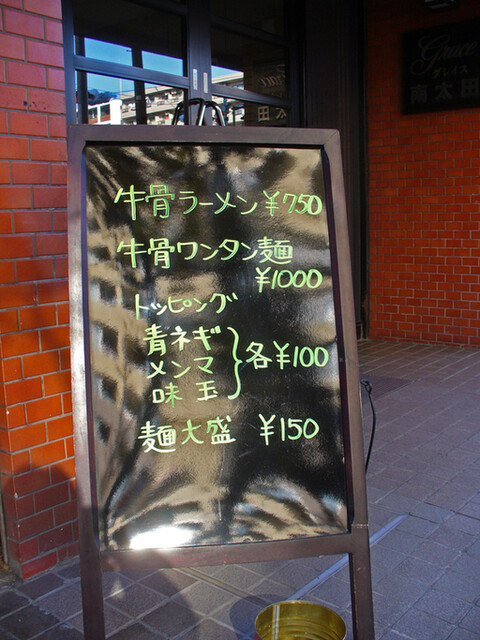 牛骨ラーメン ¥750
牛骨ワンタン麺
¥1000
トッピング
青ネギ
メンマ
味玉
各¥100
麺大盛 ¥150
Grace
グレイス
南太田